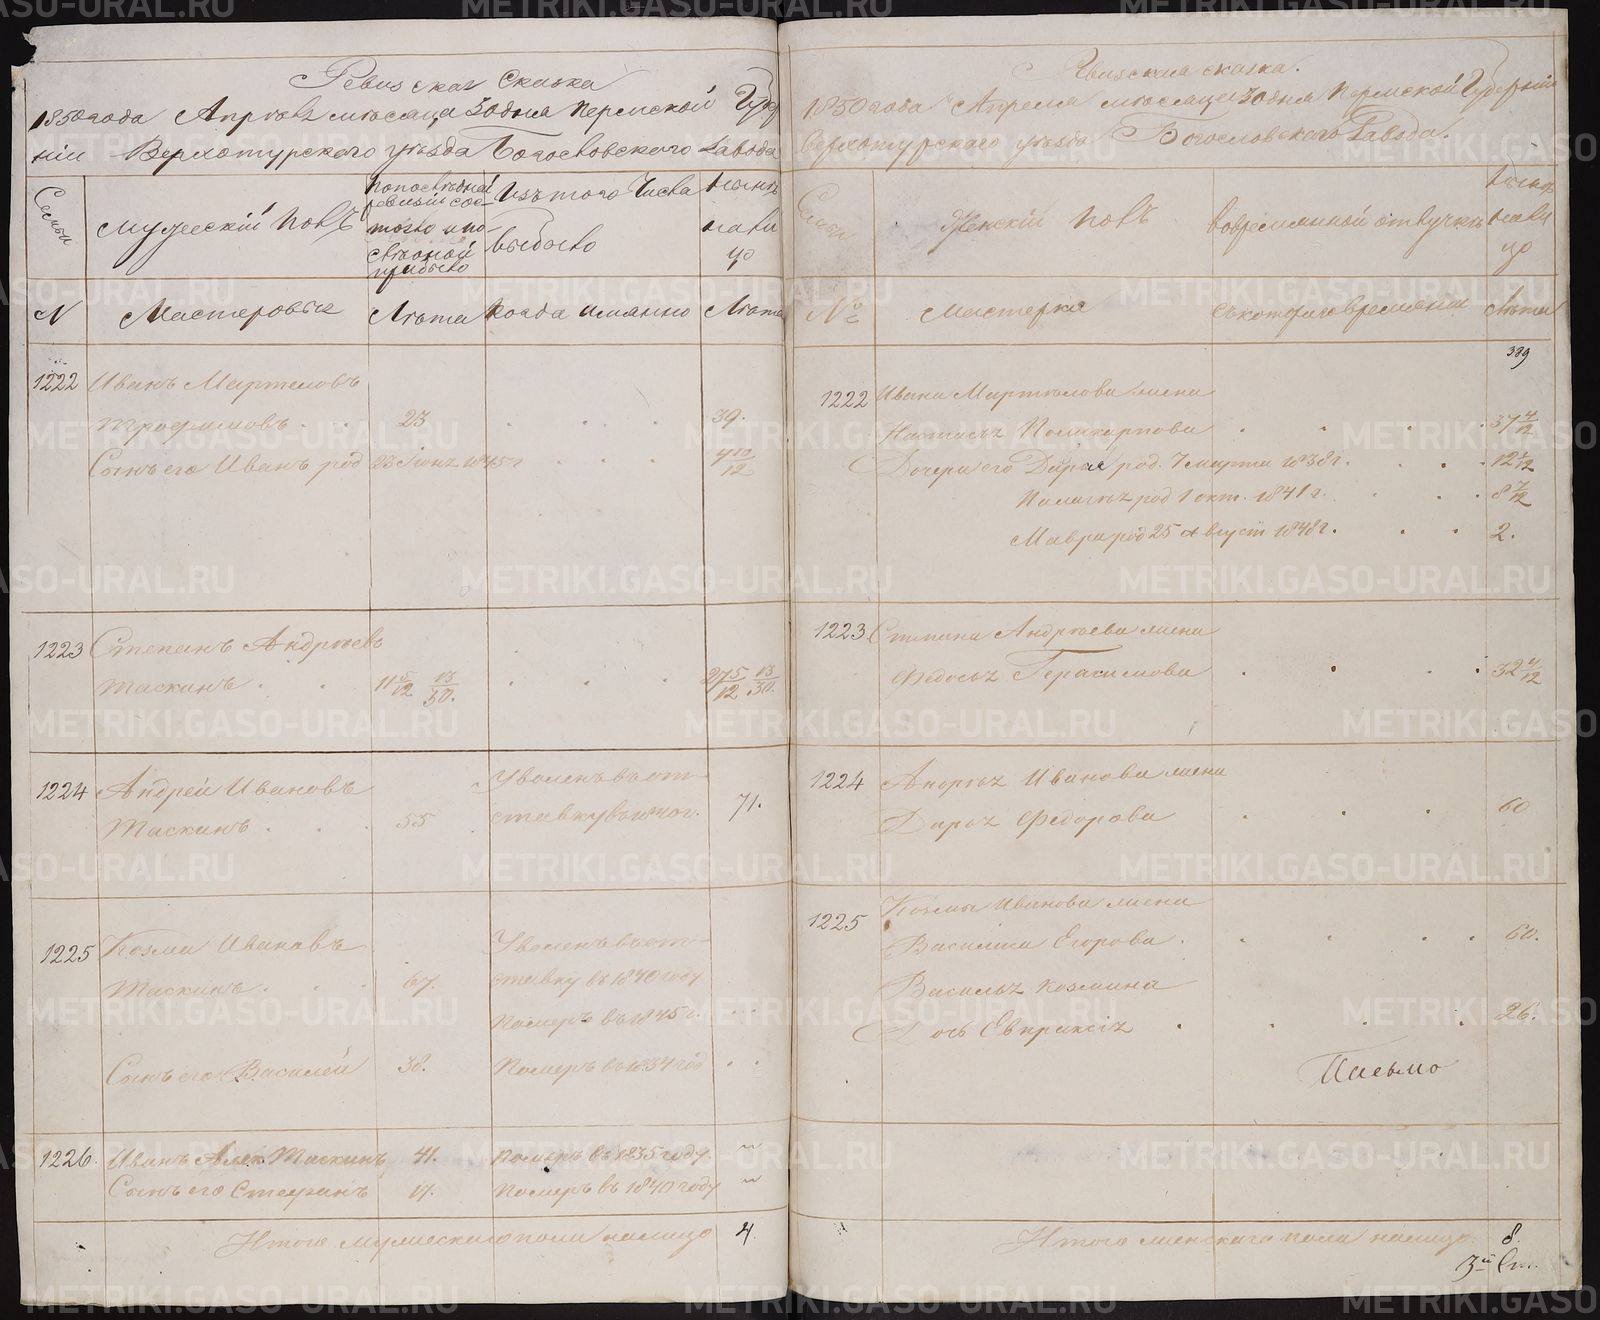 Ревизская Сказка
1850 года Апреля месяца 30 дня Пермской Губер
ніи Верхотурскаго уезда Богословскаго Завода
Семьи
Мужескій Полъ
По последней ревизіи сос-
тояло и по-
сле оной прибыло
Изъ того Числа
выбыло
Ныне
нали
цо
N Мастеровые Лета Когда имянно Лета
1222 Иванъ Мартемовъ
Трофимовъ 23 39.
Сынъ его Иванъ род 23 Іюня 1845 г 4 10/12
1223 Степанъ Андреевъ
Таскинъ 11 5/12 13/30. 27 5/12 13/30.
1224 Андрей Ивановъ Уволенъ въ от-
Таскинъ 55 ставку въ 71.
1225 Козма Ивановъ Уволенъ въ от-
Таскинъ 67. ставку въ 1840 году
Померъ въ 1845 г.
Сынъ его Василей 38. Померъ въ 1834 год
1226. Иванъ Алек. Таскинъ 41. Померъ въ 1835 году
Сынъ его Стефанъ 17. Померъ въ 1840 году
Итого мужескаго пола налицо 4
Ревизская сказка.
1850 года Апреля месяца 30 дня Пермской Губерніи
Верхотурскаго уезда Богословскаго Завода.
Семьи
Женскій Полъ
Во временной отлучке
Ныне
нали
цо
№ Мастерка Съ котораго времяни Лета
389
1222 Ивана Мартемова жена
Настасья Поликарпова 37 4/12
Дочери его Дарья род. 7 марта 1838 г. 12 1/12
Палагея род 1 окт. 1841 г. 8 7/12
Мавра род 25 Август 1848 г. 2.
1223 Степана Андреева жена
Федосья Герасимова 32 4/12
1224 Андрея Иванова жена
Дарья Федорова 60
1225 Козмы Иванова жена
Василиса Егорова 60.
Василья Козмина
Дочь Евпраксія 26.
Письмо
Итого женскаго пола налицо. 8.
3й Ст.
METRIKI.GASO-URAL.RU